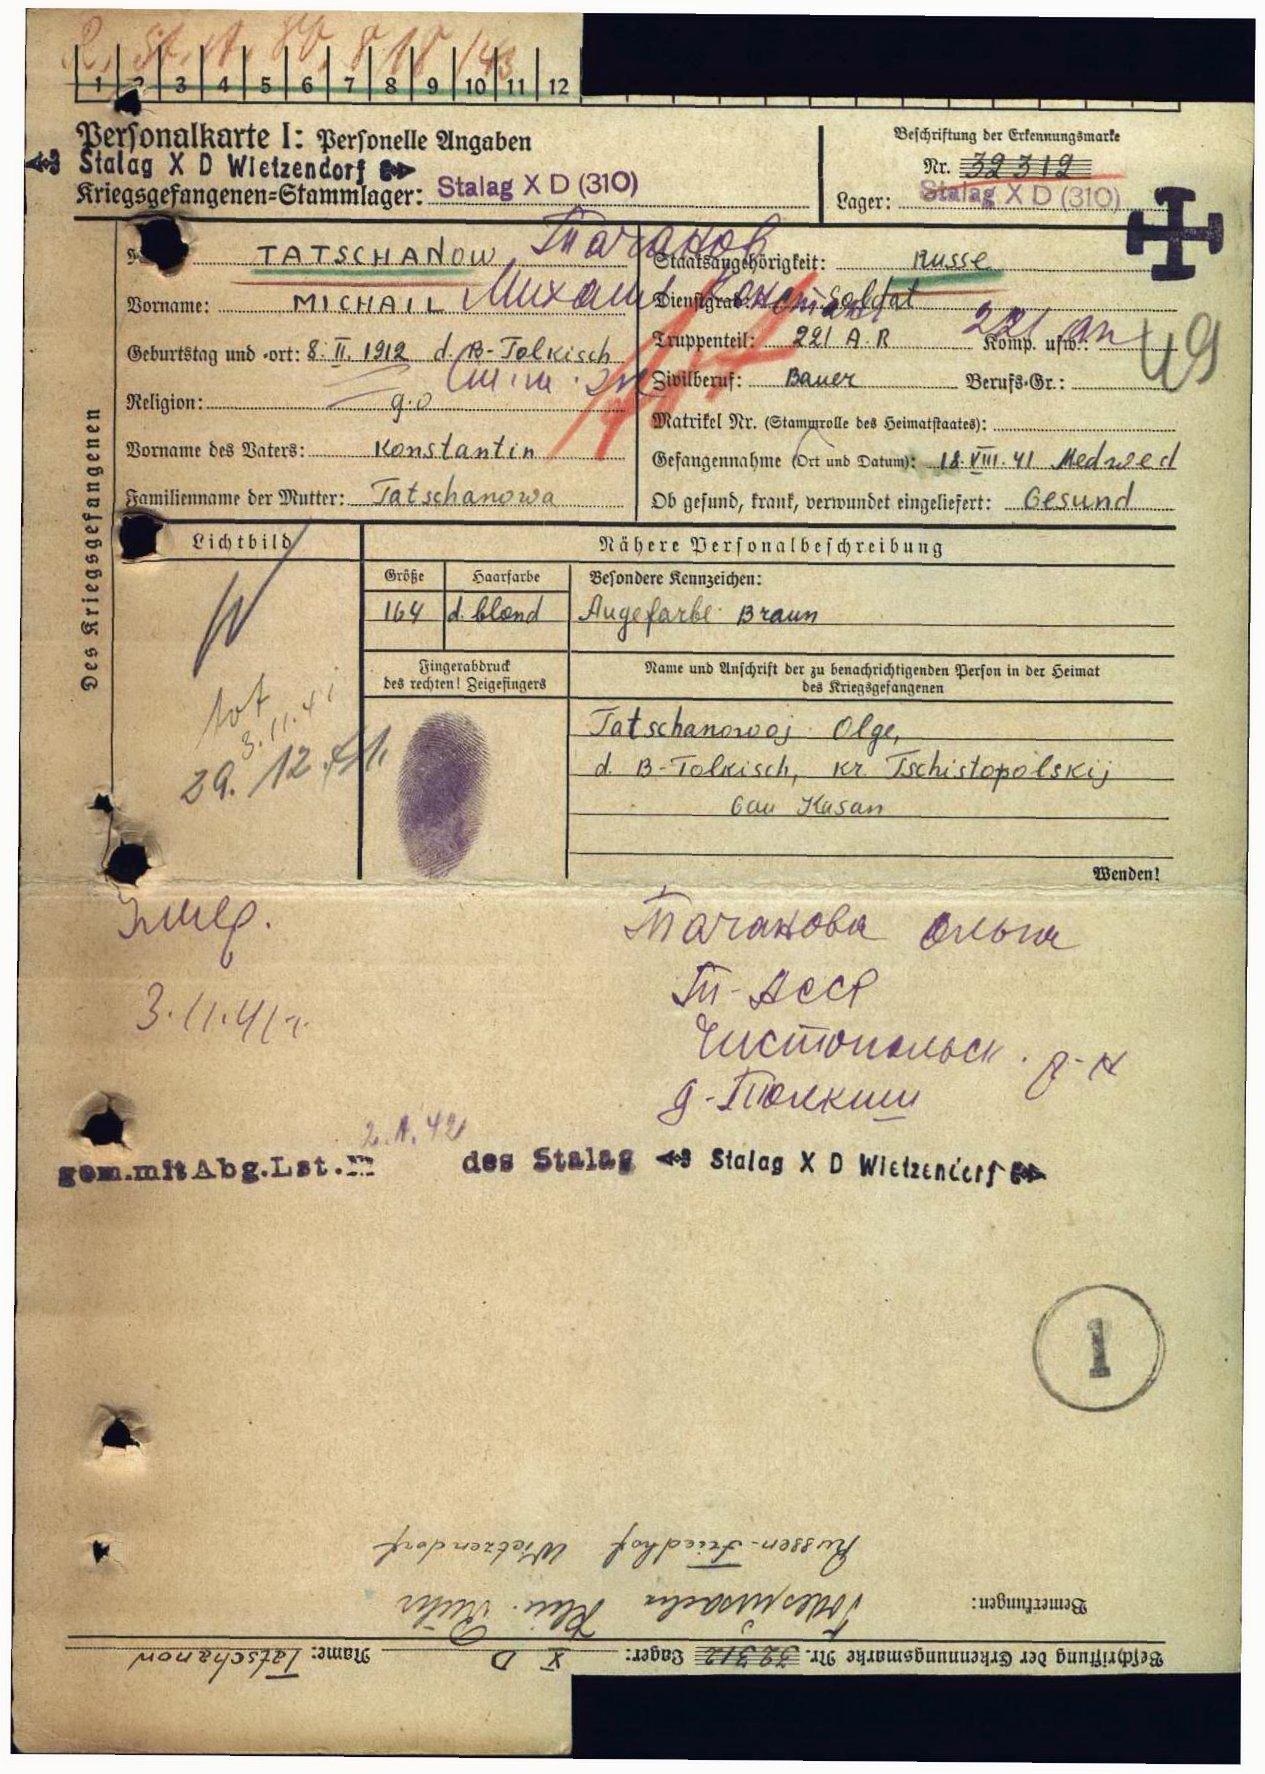 1 2 3 4 5 6 7 8 9 10 11 12
Personalkarte I: Personelle Angaben
Stalag X D Wietzendorf
Kriegsgefangenen-Stammlager: Stalag X D (310)
Beschriftung der Erkennungsmarke
Nr. 32312
Lager: Stalag X D (310)
Des Kriegsgefangenen
TATSCHANOW Тачанов
Vorname: MICHAIL Михаил
Geburtstag und -ort: 8. II. 1912 d. B-Tolkisch
Religion: g.o
Vorname des Vaters: Konstantin
Familienname der Mutter: Tatschanowa
Staatsangehörigkeit: Russe
Dienstgrad: Soldat
Truppenteil: 221 A.R Komp. usw.: 221 ап
49
Zivilberuf: Bauer Berufs-Gr.:
Matrikel Nr. (Stammrolle des Heimatstaates):
Gefangennahme (Ort und Datum): 18. VIII. 41 Medwed
Ob gesund, krank, verwundet eingeliefert: Gesund
Lichtbild
Nähere Personalbeschreibung
Größe Haarfarbe Besondere Kennzeichen:
164 d. blond Augefarbe Braun
Fingerabdruck
des rechten! Zeigefingers
Name und Anschrift der zu benachrichtigenden Person in der Heimat
des Kriegsgefangenen
tot
3.11.41
29. 12. 41.
Tatschanowoj Olge,
d. B-Tolkisch, kr. Tschistopolskij
Gau Kasan
Wenden!
Умер.
3.11.41 г.
Тачанова Ольга
Т-АССР
Чистопольск. р-н
д-Толкиш
gem.mit Abg.Lst. des Stalag Stalag X D Wietzendorf
1
Russen-Friedhof Wietzendorf
Bemerkungen: Todesursache
Beschriftung der Erkennungsmarke Nr. 32312 Lager: X D Name: Tatschanow